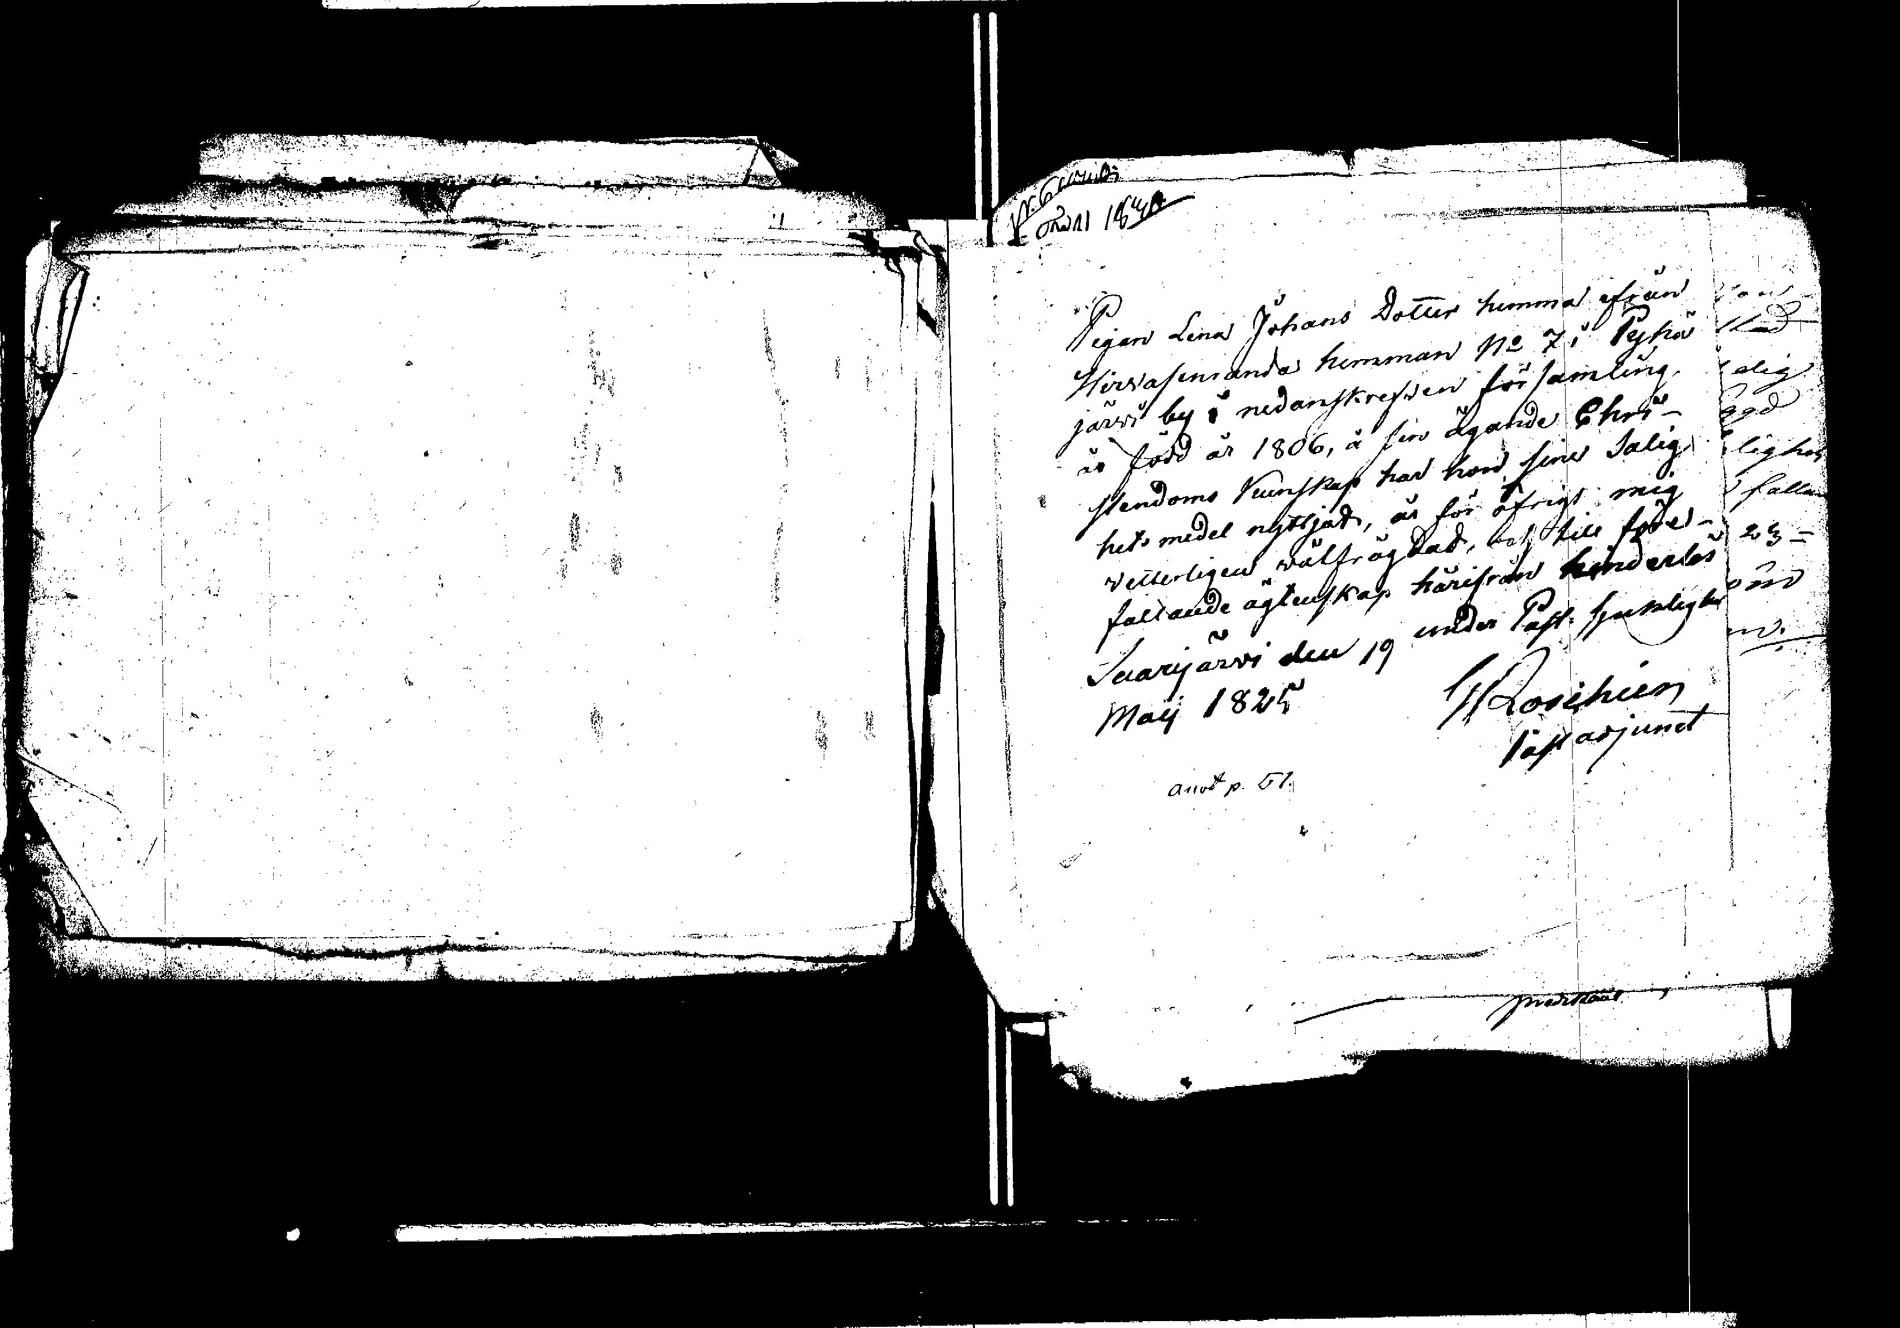 Pigan Lena Johans Dotter hemma ifrån
Hirvasensanda hemman No 7 i Pyhä
järvi by i nedanskrefven församling,
är född år 1806, å sin ägande Chri-
stendoms Kunskap har hon sine Salig
hets medel nyttjad, är för öfrigt mig
vetterligen välfrägdad, och till före-
fallande ägtenskap härifrån hinderlös
Saarijärvi den 19
Maij 1825
under Past.
Past adjunct
annot p. 51.
alig
falla
23 -